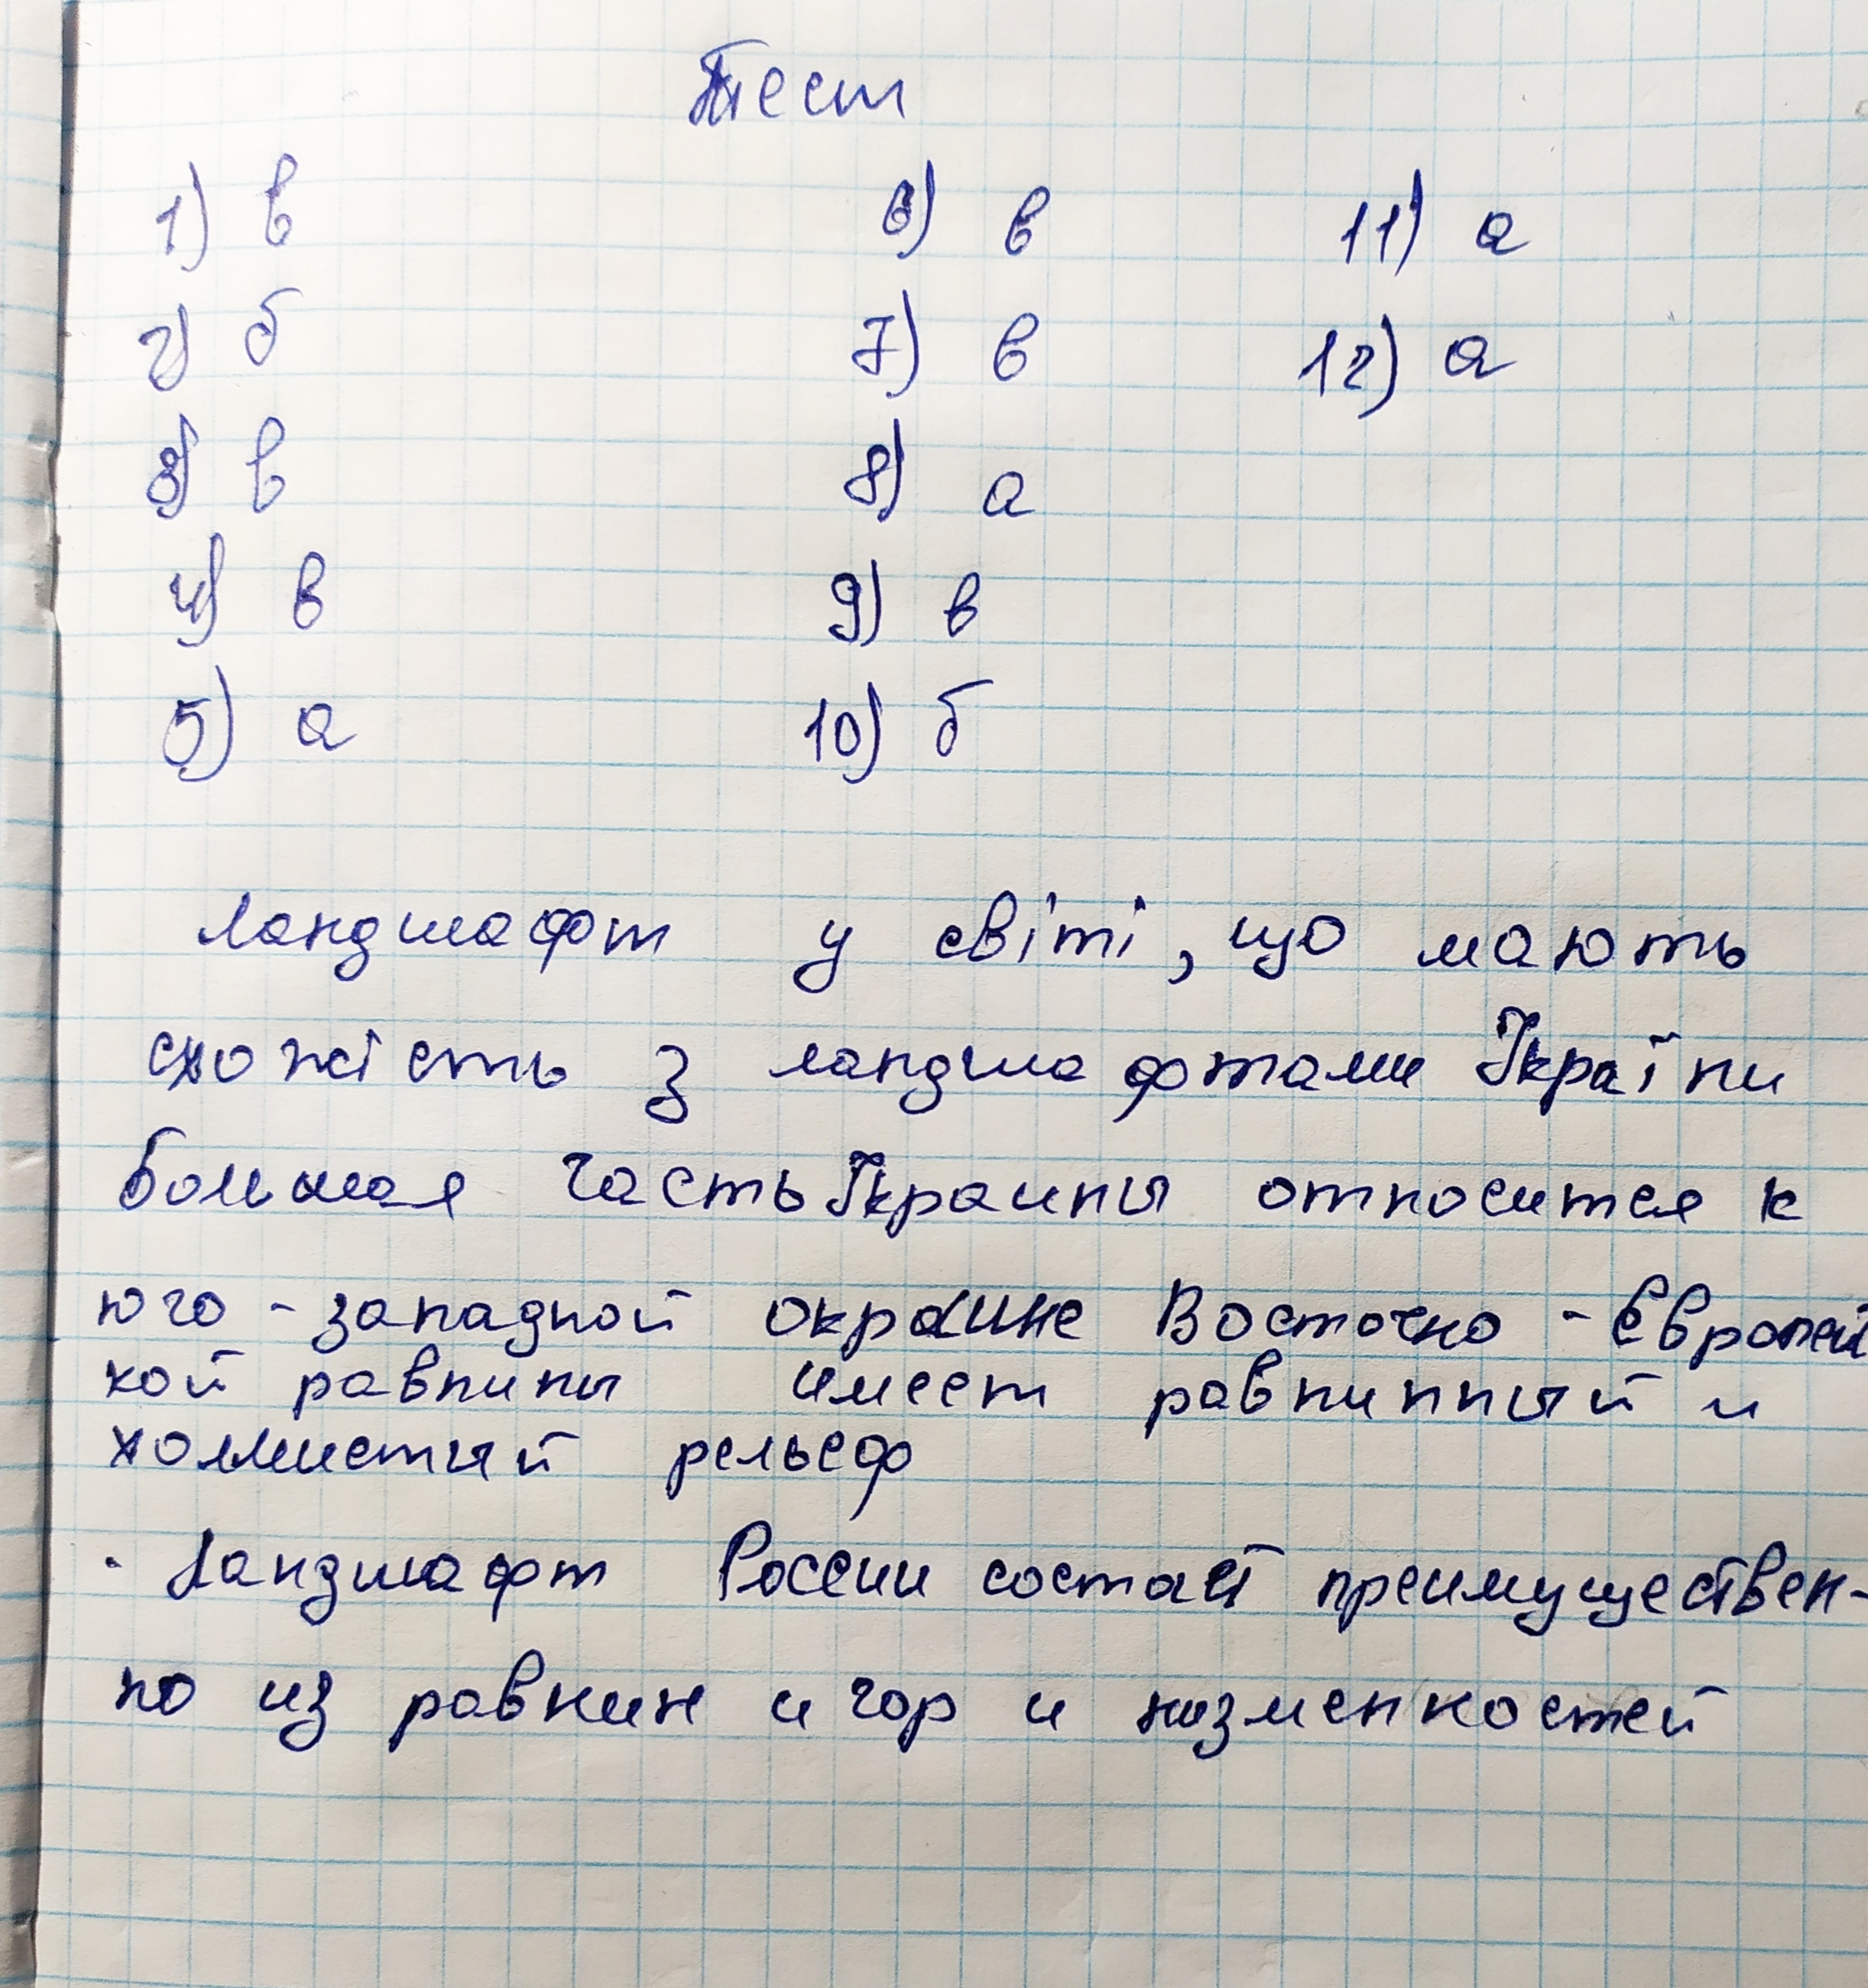 Тест
1) в
2) б
3) в
4) в
5) а
6) в
7) в
8) а
9) в
10) б
11) а
12) а
Ландшафт у світі, що мають
схожість з ландшафтами України
Большая часть Украины относится к
юго-западной окраине Восточно-Европей
кой равнины имеет равнинный и
холмистый рельеф
· Ландшафт России состаит преимуществен-
но из равнин и гор и низменностей